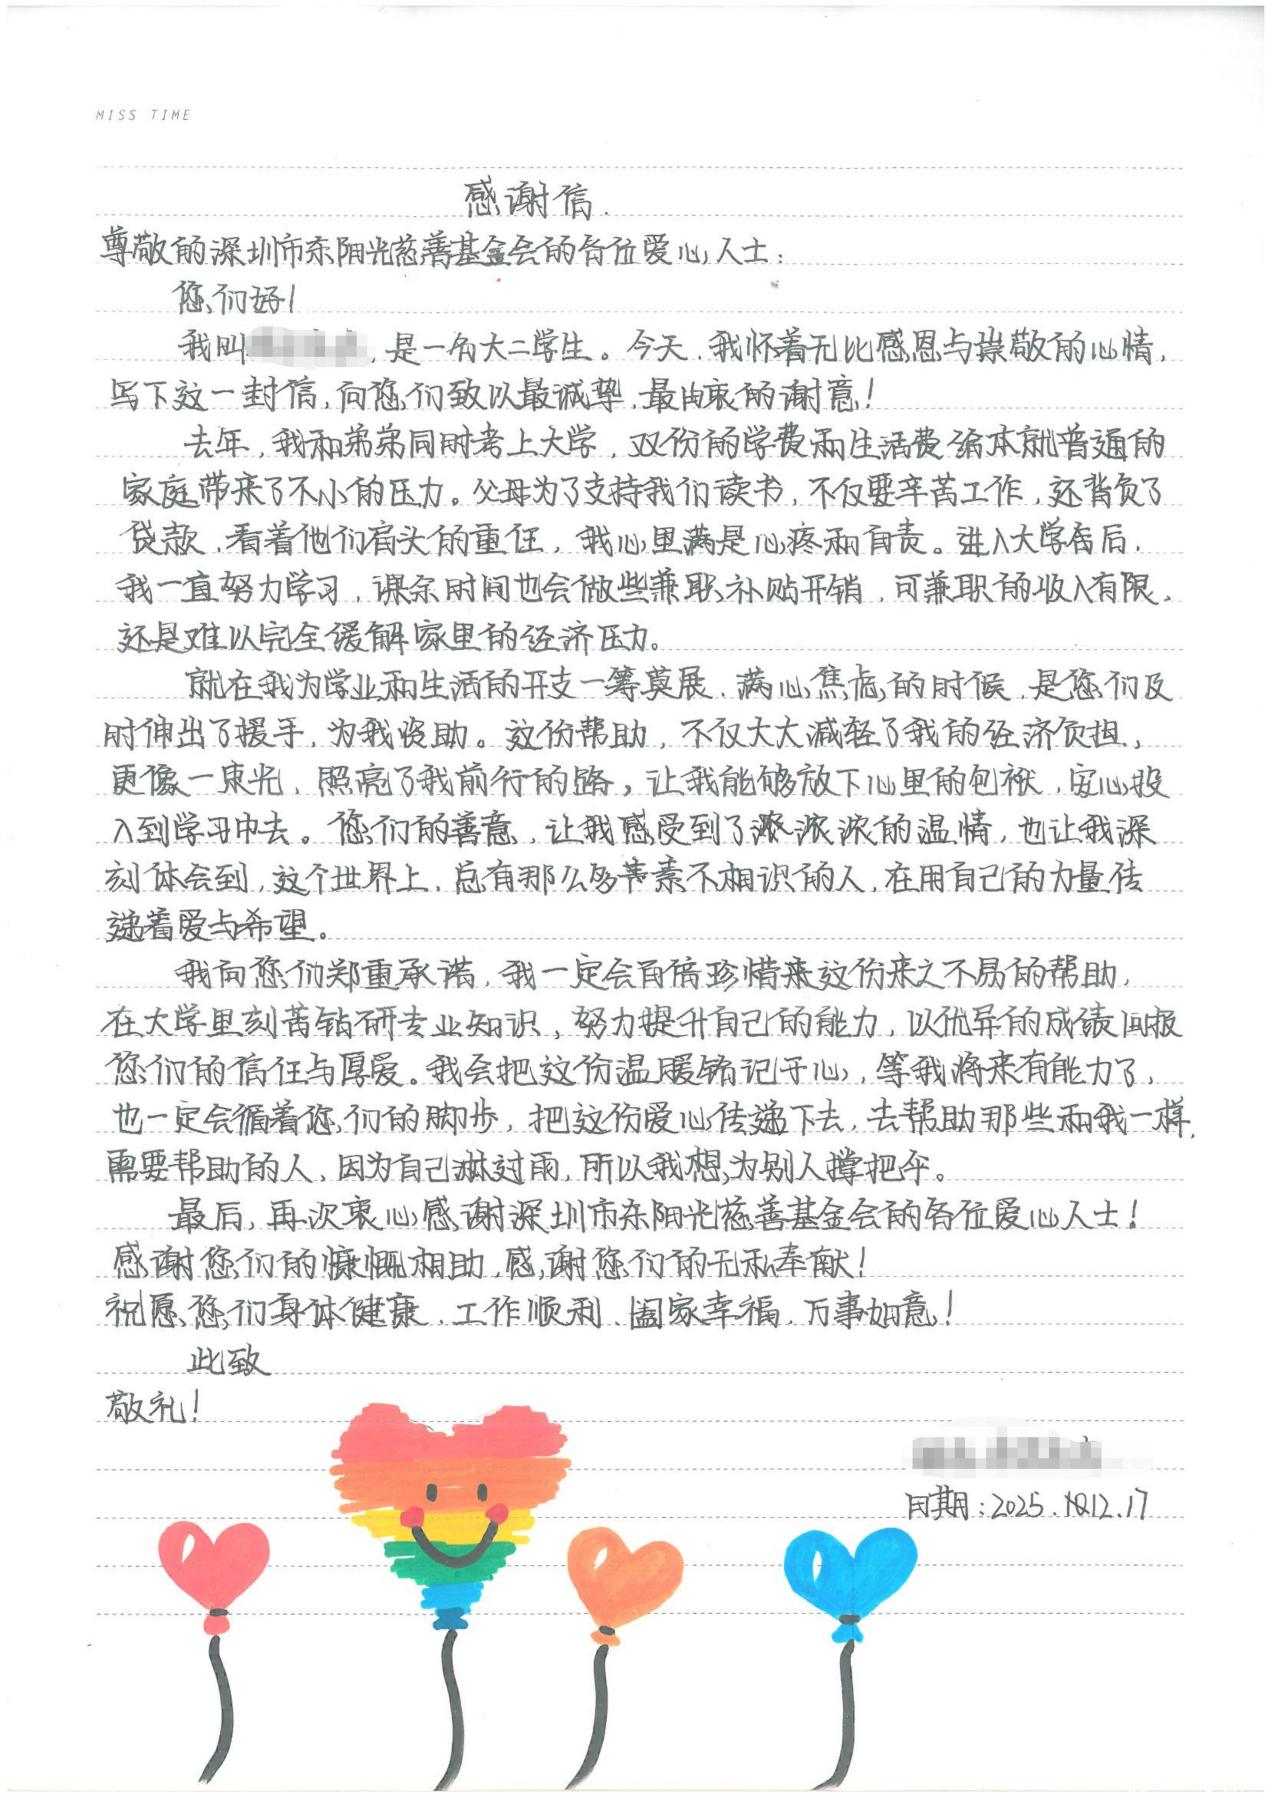 MISS TIME
感谢信.
尊敬的深圳市东阳光慈善基金会的各位爱心人士：
您们好！
我叫，是一名大二学生。今天，我怀着无比感恩与崇敬的心情，
写下这一封信，向您们致以最诚挚，最由衷的谢意！
去年，我和弟弟同时考上大学，双份的学费和生活费给本就普通的
家庭带来了不小的压力。父母为了支持我们读书，不仅要辛苦工作，还背负了
贷款，看着他们肩头的重任，我心里满是心疼和自责。进入大学吞后，
我一直努力学习，课余时间也会做些兼职补贴开销，可兼职的收入有限，
还是难以完全缓解家里的经济压力。
就在我为学业和生活的开支一筹莫展、满心焦虑的时候，是您们及
时伸出了援手，为我资助。这份帮助，不仅大大减轻了我的经济负担，
更像一束光，照亮了我前行的路，让我能够放下心里的包袱，安心投
入到学习中去。您们的善意，让我感受到了浓浓的温情，也让我深
刻体会到，这个世界上，总有那么多苹素不相识的人，在用自己的力量传
递着爱与希望。
我向您们郑重承诺，我一定会百倍珍惜来这份来之不易的帮助，
在大学里刻苦钻研专业知识，努力提升自己的能力，以优异的成绩回报
您们的信任与厚爱。我会把这份温暖铭记于心，等我将来有能力了，
也一定会循着您们的脚步，把这份爱心传递下去，去帮助那些和我一样，
需要帮助的人，因为自己淋过雨，所以我想为别人撑把伞。
最后，再次衷心感谢深圳市东阳光慈善基金会的各位爱心人士！
感谢您们的慷慨相助，感谢您们的无私奉献！
祝愿您们身体健康、工作顺利、阖家幸福，万事如意！
此致
敬礼！
日期：2025.12.17